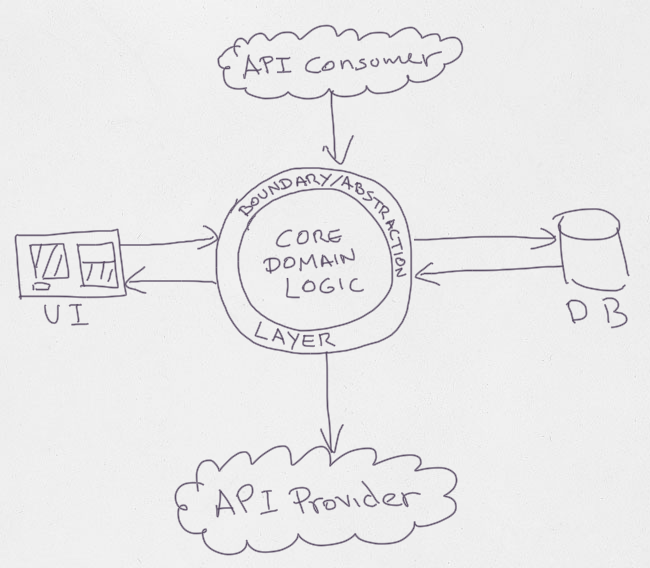 API Consumer
BOUNDARY/ABSTRACTION
CORE
DOMAIN
LOGIC
LAYER
UI
DB
API Provider